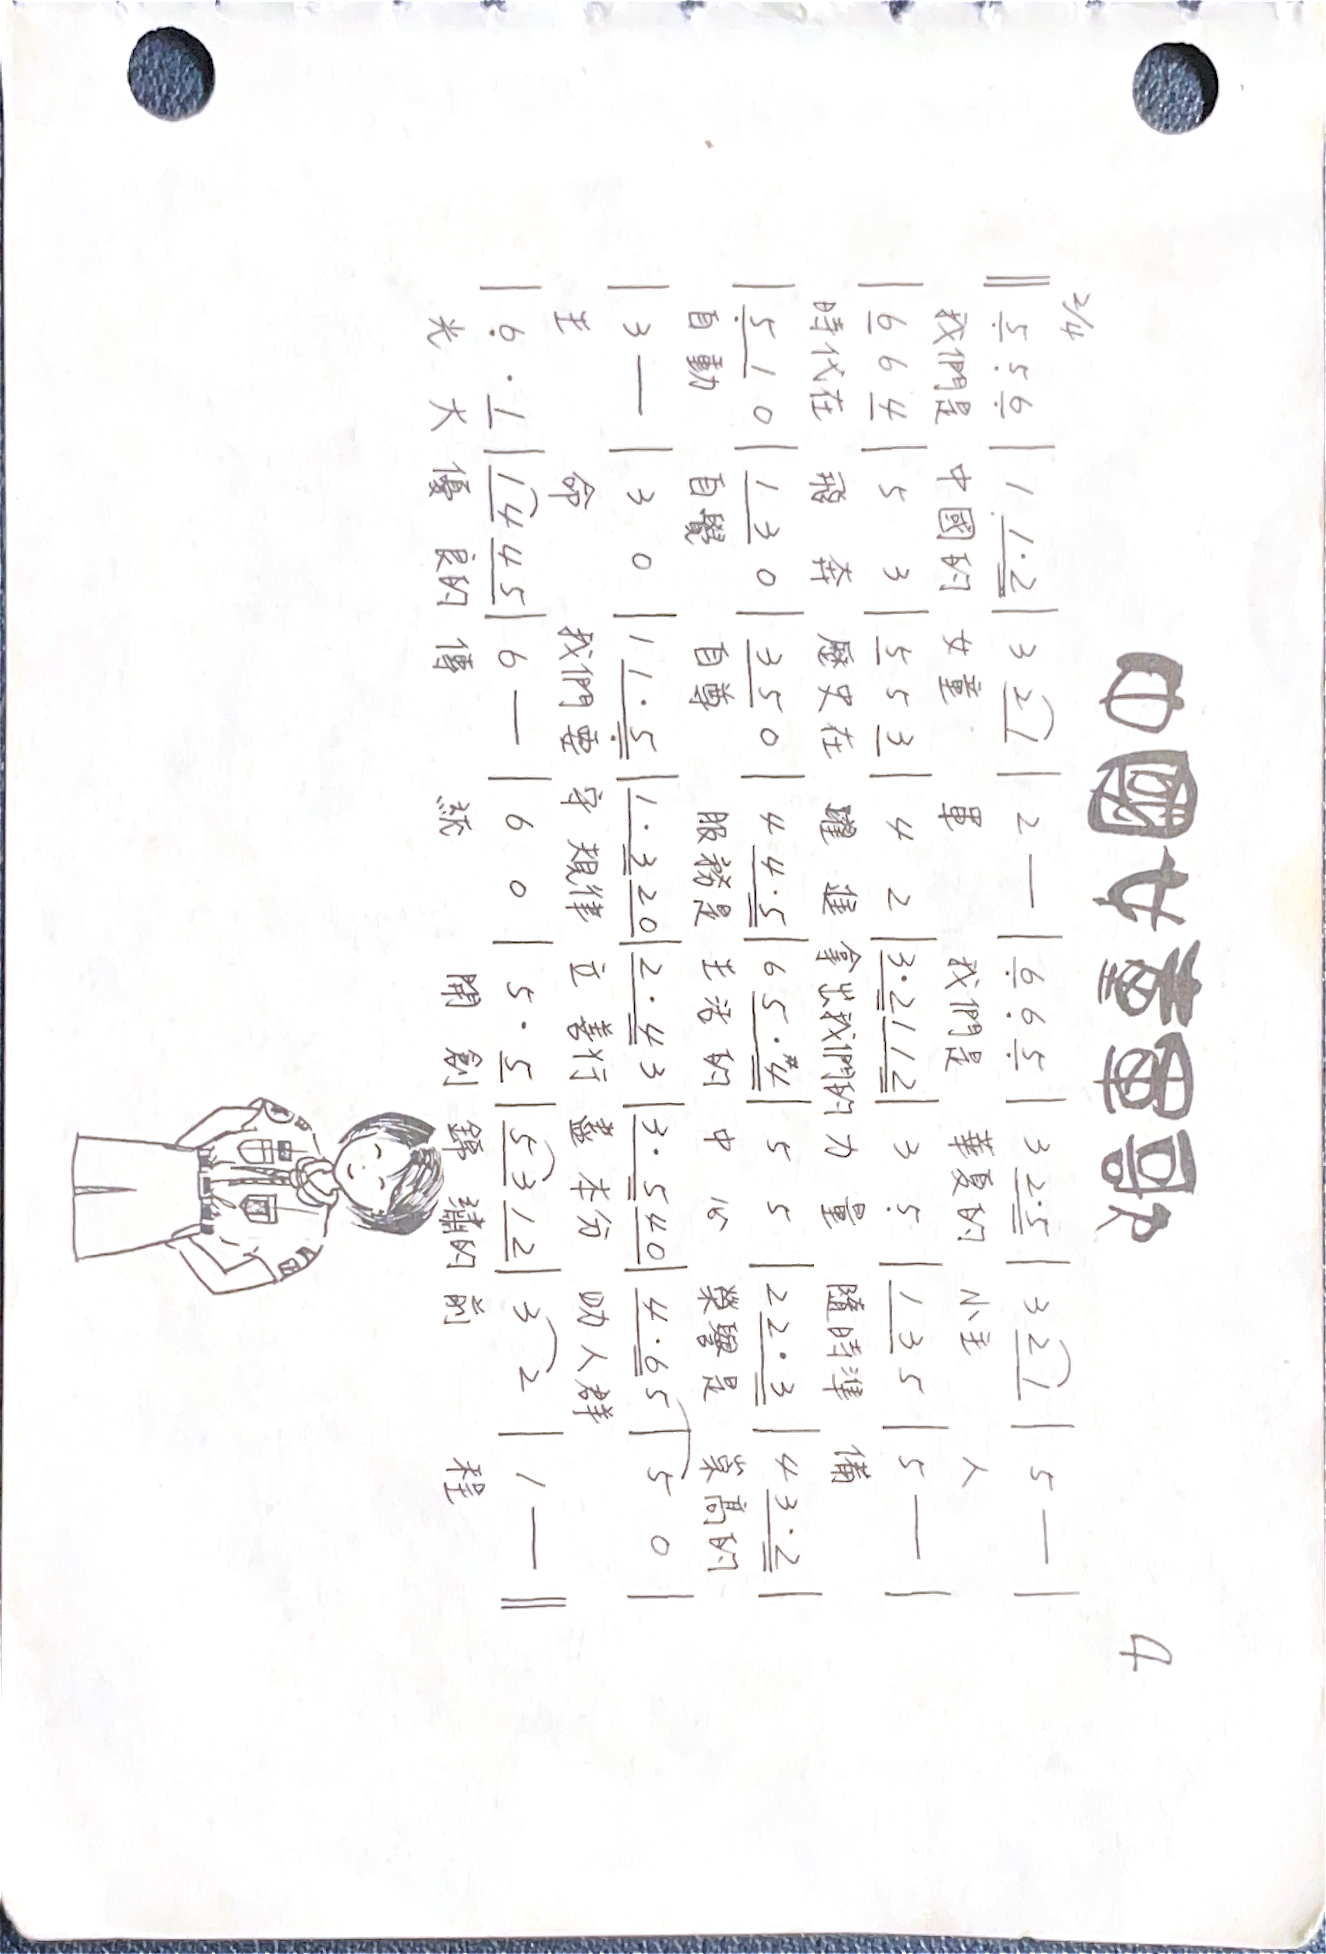 中國女童軍歌
4
2/4
‖ 5 5 6 | 1 1·2 | 3 2 1 | 2 — | 6 6 5 | 3 2·5 | 3 2 1 | 5 — |
我們是 中國的 女童 軍 我們是 華夏的 小主 人
| 6 6 4 | 5 3 | 5 5 3 | 4 2 | 3·2 1 1 2 | 3 5 | 1 3 5 | 5 — |
時代在 飛 奔 歷史在 躍 進 拿出我們的 力 量 隨時準 備
| 5 1 0 | 1 3 0 | 3 5 0 | 4 4·5 | 6 5·#4 | 5 5 | 2 2·3 | 4 3·2 |
自動 自覺 自尊 服務是 生活的 中心 榮譽是 崇高的
| 3 — | 3 0 | 1 1·5 | 1·3 2 0 | 2·4 3 | 3·5 4 0 | 4·6 5 | 5 0 |
生 命 我們要 守規律 立善行 盡本分 助人群
| 6·1 | 1 4 4 5 | 6 — | 6 0 | 5·5 | 5 3 1 2 | 3 2 | 1 — ‖
光 大 優 良的 傳 統 開 創 錦 繡的 前 程